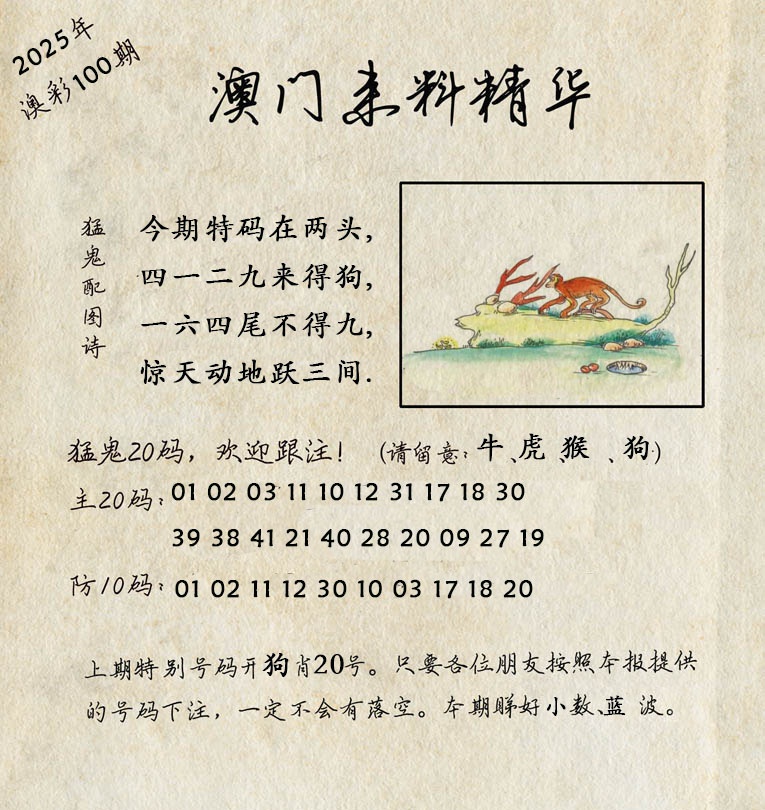 2025年
澳彩100期
澳门来料精华
猛鬼配图诗
今期特码在两头,
四一二九来得狗,
一六四尾不得九,
惊天动地跃三间.
猛鬼20码，欢迎跟注！（请留意：牛、虎、猴、狗）
主20码：01 02 03 11 10 12 31 17 18 30
39 38 41 21 40 28 20 09 27 19
防10码：01 02 11 12 30 10 03 17 18 20
上期特别号码开狗肖20号。只要各位朋友按照本报提供
的号码下注，一定不会有落空。本期睇好小数、蓝 波。